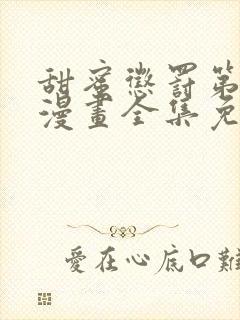 甜蜜懲罰第
漫畫全集免
愛在心底口難